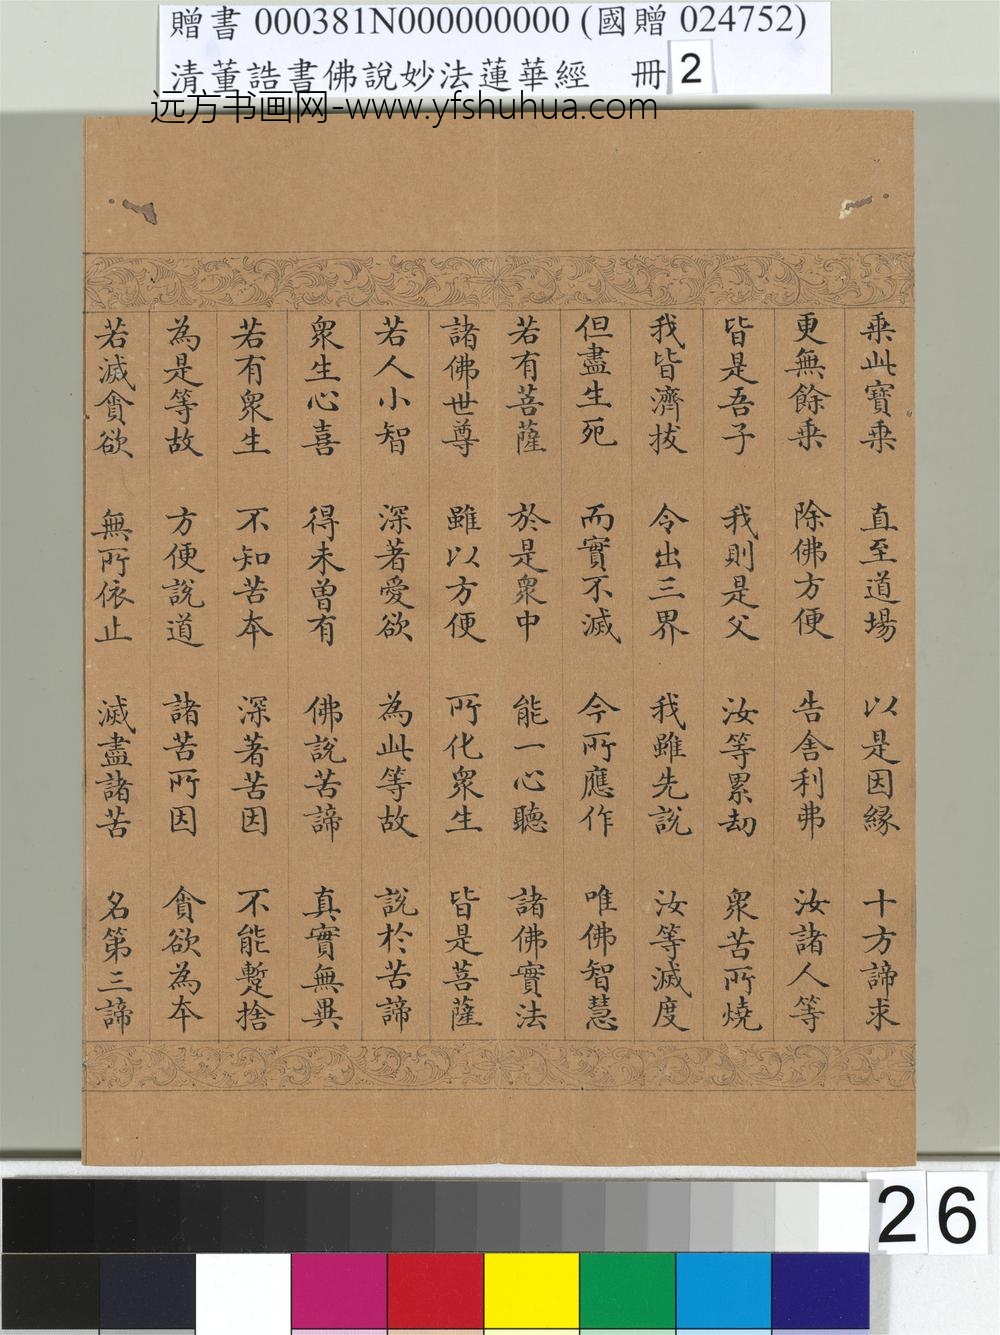 贈書 000381N000000000 (國贈 024752)
清董誥書佛說妙法蓮華經 冊 2
远方书画网-www.yfshuhua.com
乘此寶乘 直至道場 以是因緣 十方諦求
更無餘乘 除佛方便 告舍利弗 汝諸人等
皆是吾子 我則是父 汝等累劫 衆苦所燒
我皆濟拔 令出三界 我雖先說 汝等滅度
但盡生死 而實不滅 今所應作 唯佛智慧
若有菩薩 於是衆中 能一心聽 諸佛實法
諸佛世尊 雖以方便 所化衆生 皆是菩薩
若人小智 深著愛欲 為此等故 說於苦諦
衆生心喜 得未曾有 佛說苦諦 真實無異
若有衆生 不知苦本 深著苦因 不能蹔捨
為是等故 方便說道 諸苦所因 貪欲為本
若滅貪欲 無所依止 滅盡諸苦 名第三諦
26